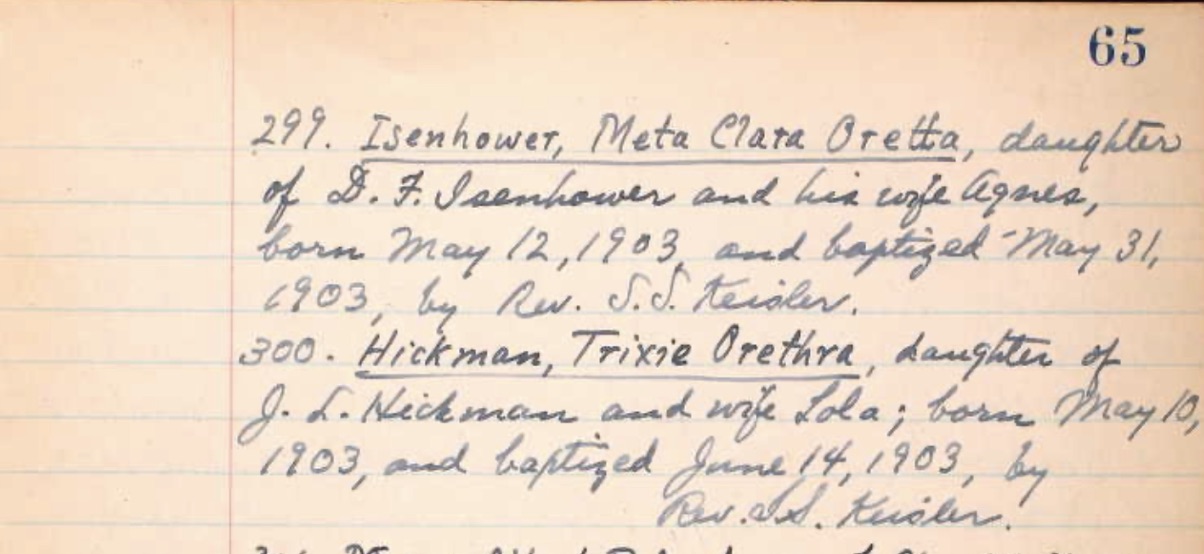 65
299. Isenhower, Meta Clara Oretta, daughter
of D. F. Isenhower and his wife Agnes,
born May 12, 1903, and baptized May 31,
1903, by Rev. S. S. Keisler.
300. Hickman, Trixie Orethra, daughter of
J. L. Hickman and wife Lola; born May 10,
1903, and baptized June 14, 1903, by
Rev. S. S. Keisler.